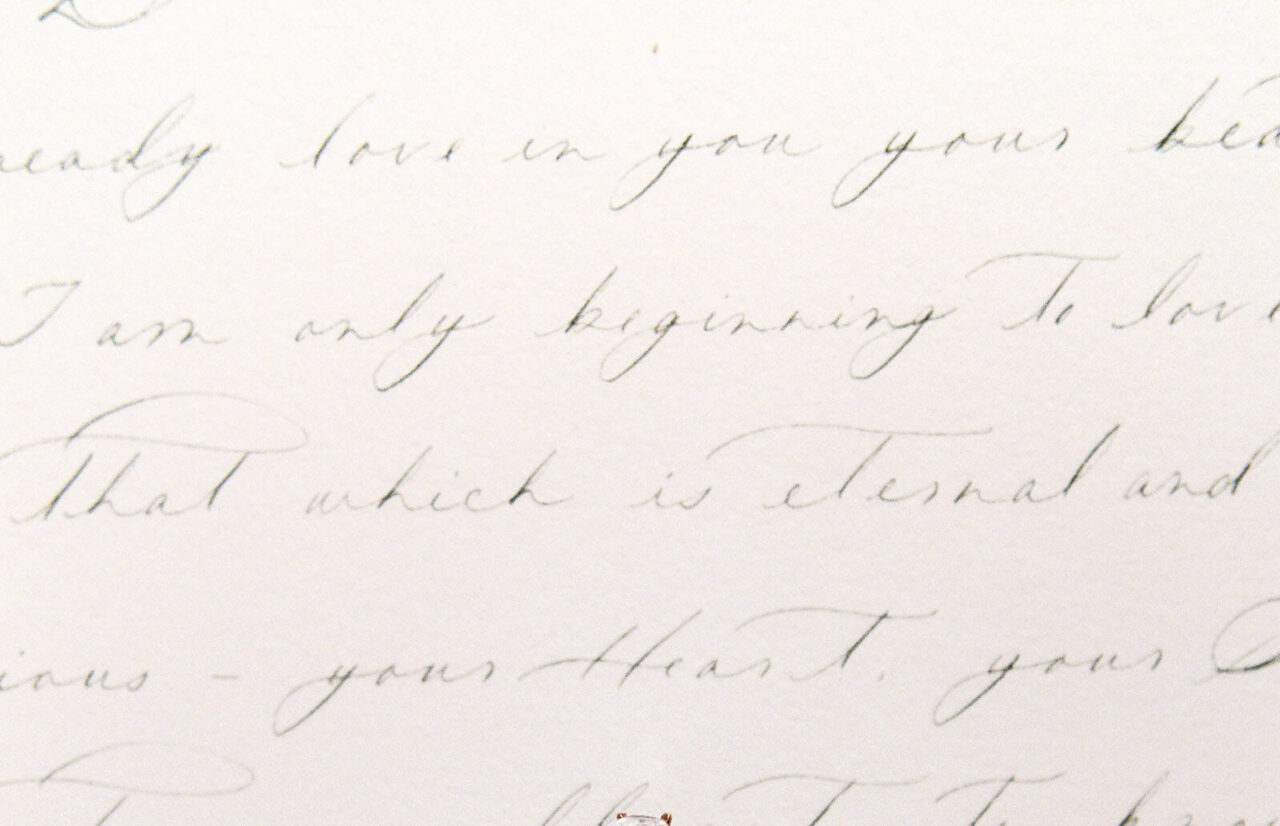 ready love in you your bea
I am only beginning to love
that which is eternal and
ious - your Heart. your